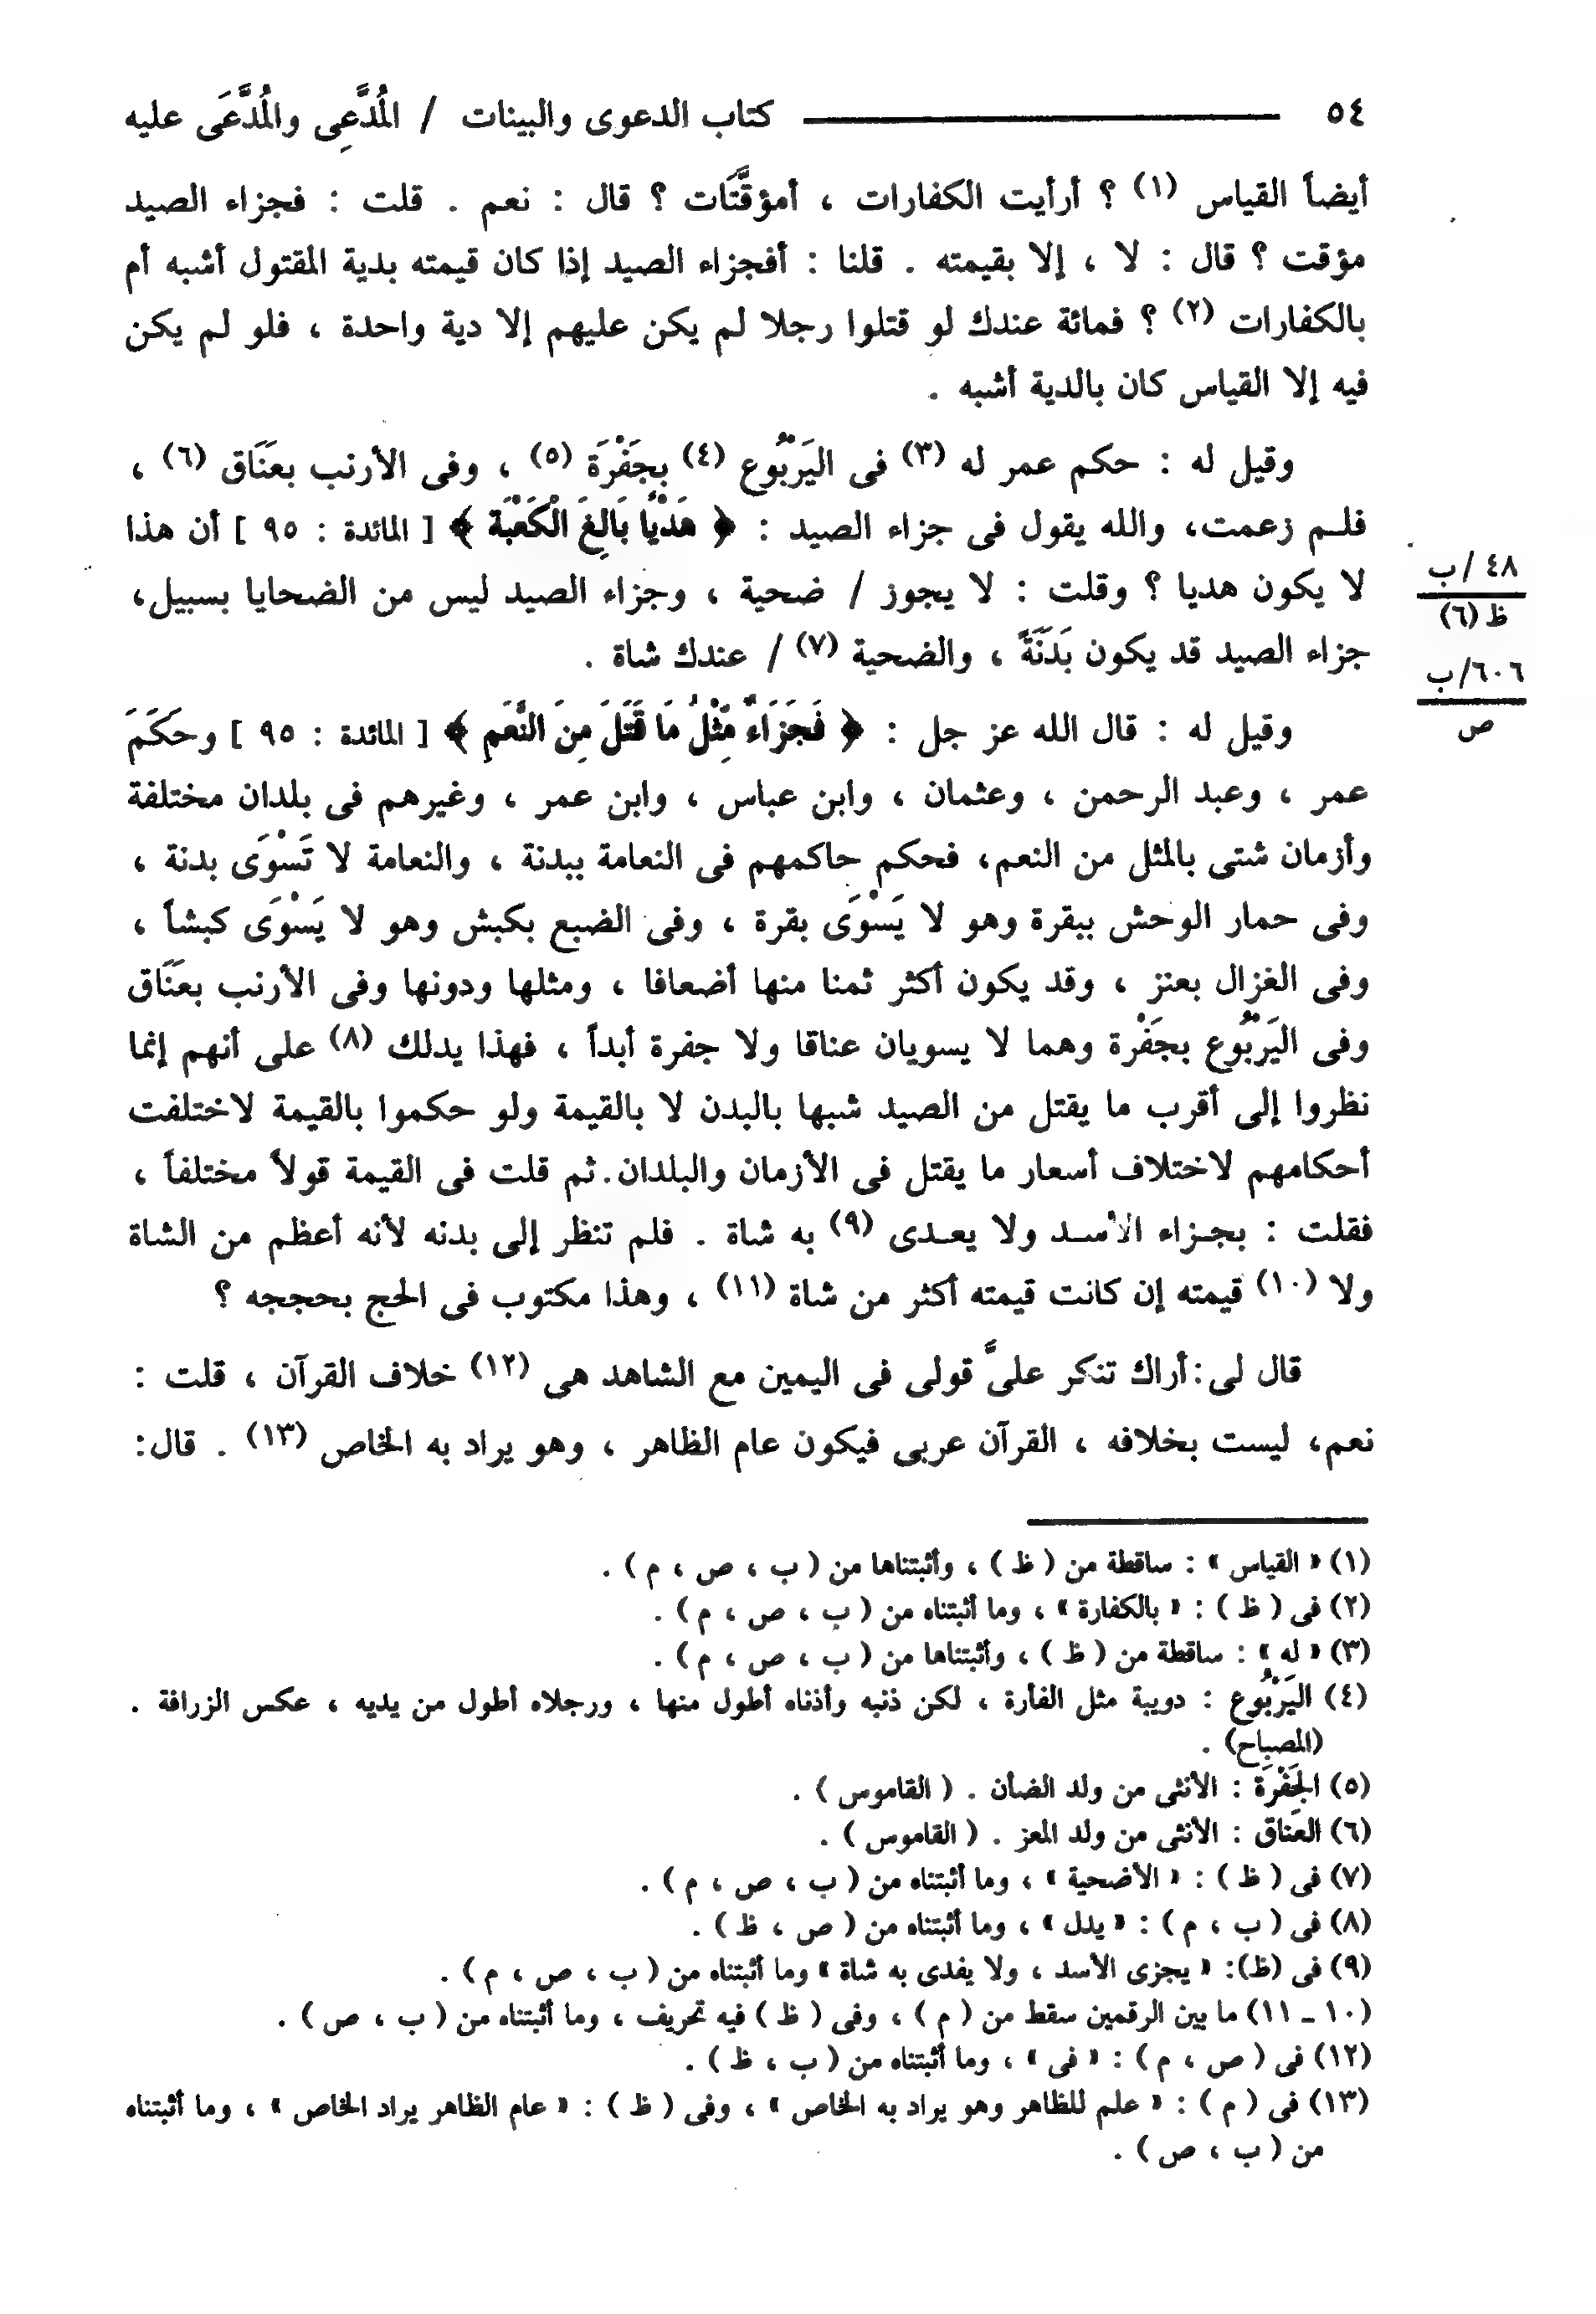 ٥٤ كتاب الدعوى والبينات / المُدَّعِى والمُدَّعَى عليه
أيضاً القياس (١) ؟ أرأيت الكفارات ، أمؤقَّتَات ؟ قال : نعم . قلت : فجزاء الصيد
مؤقت ؟ قال : لا ، إلا بقيمته . قلنا : أفجزاء الصيد إذا كان قيمته بدية المقتول أشبه أم
بالكفارات (٢) ؟ فمائة عندك لو قتلوا رجلا لم يكن عليهم إلا دية واحدة ، فلو لم يكن
فيه إلا القياس كان بالدية أشبه .
وقيل له : حكم عمر له (٣) فى اليَرْبُوع (٤) بجَفْرَة (٥) ، وفى الأرنب بعَنَاق (٦) ،
فلـم زعمت، والله يقول فى جزاء الصيد : ﴿ هَدْيًا بَالِغَ الْكَعْبَة ﴾ [ المائدة : ٩٥ ] أن هذا
لا يكون هديا ؟ وقلت : لا يجوز / ضحية ، وجزاء الصيد ليس من الضحايا بسبيل،
٤٨ /ب
ظ (٦)
جزاء الصيد قد يكون بَدَنَةً ، والضحية (٧) / عندك شاة .
٦٠٦/ب
ص
وقيل له : قال الله عز جل : ﴿ فَجَزَاءٌ مِّثْلُ مَا قَتَلَ مِنَ النَّعَمِ ﴾ [ المائدة : ٩٥ ] وحَكَمَ
عمر ، وعبد الرحمن ، وعثمان ، وابن عباس ، وابن عمر ، وغيرهم فى بلدان مختلفة
وأزمان شتى بالمثل من النعم، فحكم حاكمهم فى النعامة ببدنة ، والنعامة لا تَسْوَى بدنة ،
وفى حمار الوحش ببقرة وهو لا يَسْوَى بقرة ، وفى الضبع بكبش وهو لا يَسْوَى كبشاً ،
وفى الغزال بعنز ، وقد يكون أكثر ثمنا منها أضعافا ، ومثلها ودونها وفى الأرنب بعَنَاق
وفى اليَرْبُوع بجَفْرة وهما لا يسويان عناقا ولا جفرة أبداً ، فهذا يدلك (٨) على أنهم إنما
نظروا إلى أقرب ما يقتل من الصيد شبها بالبدن لا بالقيمة ولو حكموا بالقيمة لاختلفت
أحكامهم لاختلاف أسعار ما يقتل فى الأزمان والبلدان. ثم قلت فى القيمة قولاً مختلفاً ،
فقلت : بجـزاء الأسـد ولا يعـدى (٩) به شاة . فلم تنظر إلى بدنه لأنه أعظم من الشاة
ولا (١٠) قيمته إن كانت قيمته أكثر من شاة (١١) ، وهذا مكتوب فى الحج بحججه ؟
قال لى : أراك تنكر علىَّ قولى فى اليمين مع الشاهد هى (١٢) خلاف القرآن ، قلت :
نعم، ليست بخلافه ، القرآن عربى فيكون عام الظاهر ، وهو يراد به الخاص (١٣) . قال:
(١) « القياس » : ساقطة من ( ظ ) ، وأثبتناها من ( ب ، ص ، م ) .
(٢) فى ( ظ ) : « بالكفارة » ، وما أثبتناه من ( ب ، ص ، م ) .
(٣) « له » : ساقطة من ( ظ ) ، وأثبتناها من ( ب ، ص ، م ) .
(٤) اليَرْبُوع : دويبة مثل الفأرة ، لكن ذنبه وأذناه أطول منها ، ورجلاه أطول من يديه ، عكس الزرافة .
(المصباح) .
(٥) الجَفْرَة : الأنثى من ولد الضأن . ( القاموس ) .
(٦) العَناق : الأنثى من ولد المعز . ( القاموس ) .
(٧) فى ( ظ ) : « الأضحية » ، وما أثبتناه من ( ب ، ص ، م ) .
(٨) فى ( ب ، م ) : « يدل » ، وما أثبتناه من ( ص ، ظ ) .
(٩) فى (ظ): « يجزى الأسد ، ولا يفدى به شاة » وما أثبتناه من ( ب ، ص ، م ) .
(١٠ ـ ١١) ما بين الرقمين سقط من ( م ) ، وفى ( ظ ) فيه تحريف ، وما أثبتناه من ( ب ، ص ) .
(١٢) فى ( ص ، م ) : « فى » ، وما أثبتناه من ( ب ، ظ ) .
(١٣) فى ( م ) : « علم للظاهر وهو يراد به الخاص » ، وفى ( ظ ) : « عام الظاهر يراد الخاص » ، وما أثبتناه
من ( ب ، ص ) .